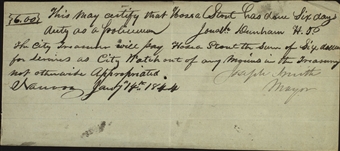 $6.00 This may certify that Hosea Stout has done Six days
duty as a policeman Jonath Dunham H. O. P
the City Treasurer will pay Hosea Stout the Sum of Six dollars
for Services as City Watch out of any Moneys in the Treasury
not otherwise Appropriated. Joseph Smith
Nauvoo Jany 14th 1844 Mayor